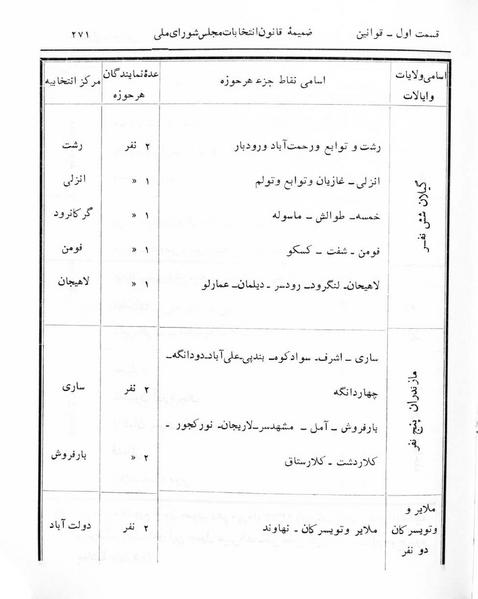 قسمت اول ـ قوانین ضمیمهٔ قانون انتخابات مجلس شورای ملی ۲۷۱
اسامی ولایات و ایالات اسامی نقاط جزء هر حوزه عدهٔ نمایندگان هر حوزه مرکز انتخابیه
گیلان شش نفر
رشت و توابع ورحمت‌آباد ورودبار ۲ نفر رشت
انزلی ـ غازیان وتوابع وتولم ۱ « انزلی
خمسه ـ طوالش ـ ماسوله ۱ « گرکانرود
فومن ـ شفت ـ کسکو ۱ « فومن
لاهیجان ـ لنگرود ـ رودسر ـ دیلمان ـ عمارلو ۱ « لاهیجان
مازندران پنج نفر
ساری ـ اشرف ـ سوادکوه ـ بندپی علی‌آباد ـ دودانگه ـ
چهاردانگه ۲ نفر ساری
بارفروش ـ آمل ـ مشهدسر ـ لاریجان ـ نور کجور ـ
کلاردشت ـ کلارستاق ۲ « بارفروش
ملایر و
وتویسرکان ملایر وتویسرکان ـ نهاوند ۲ نفر دولت آباد
دو نفر